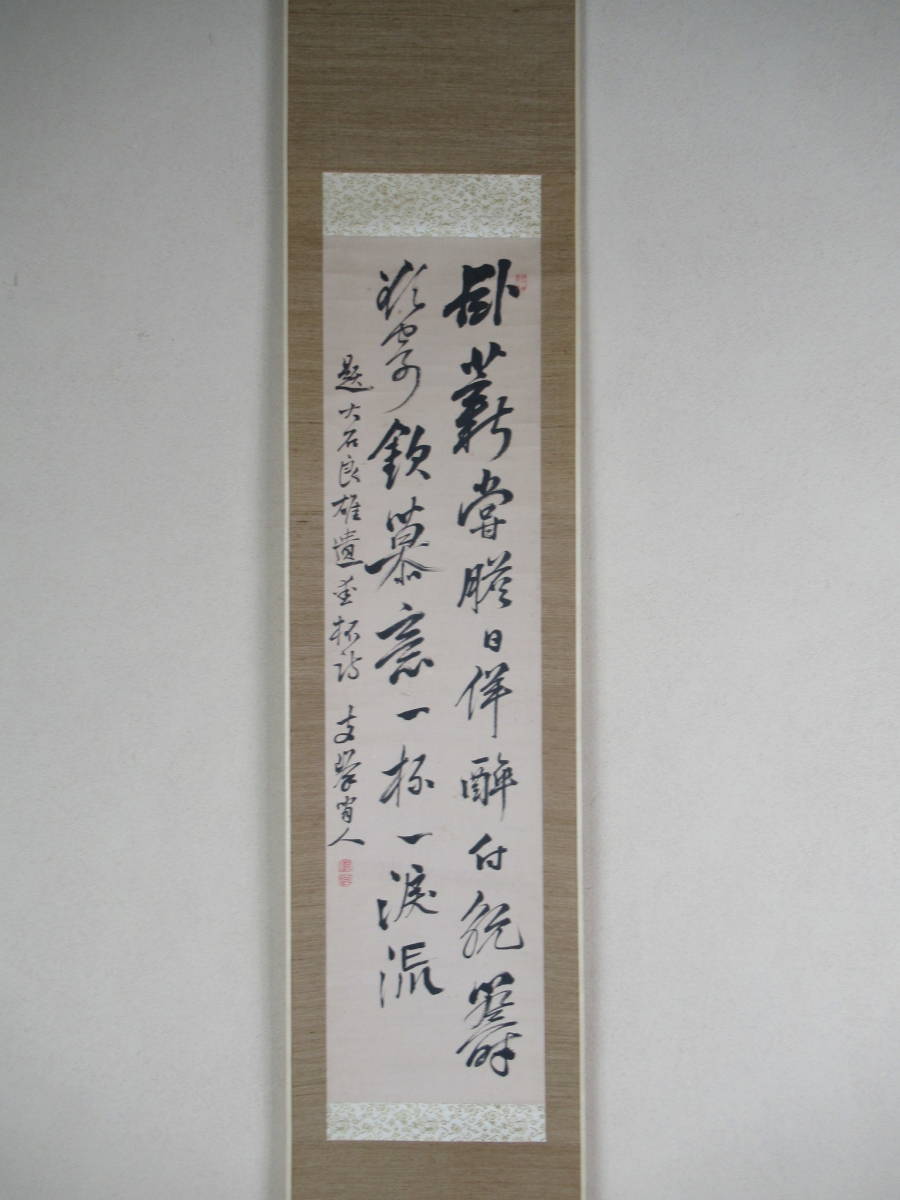 臥薪嘗膽日佯酔付觥籌
寄欽慕意一杯一涙流
題大石良雄遺愛杯詩 支峯人